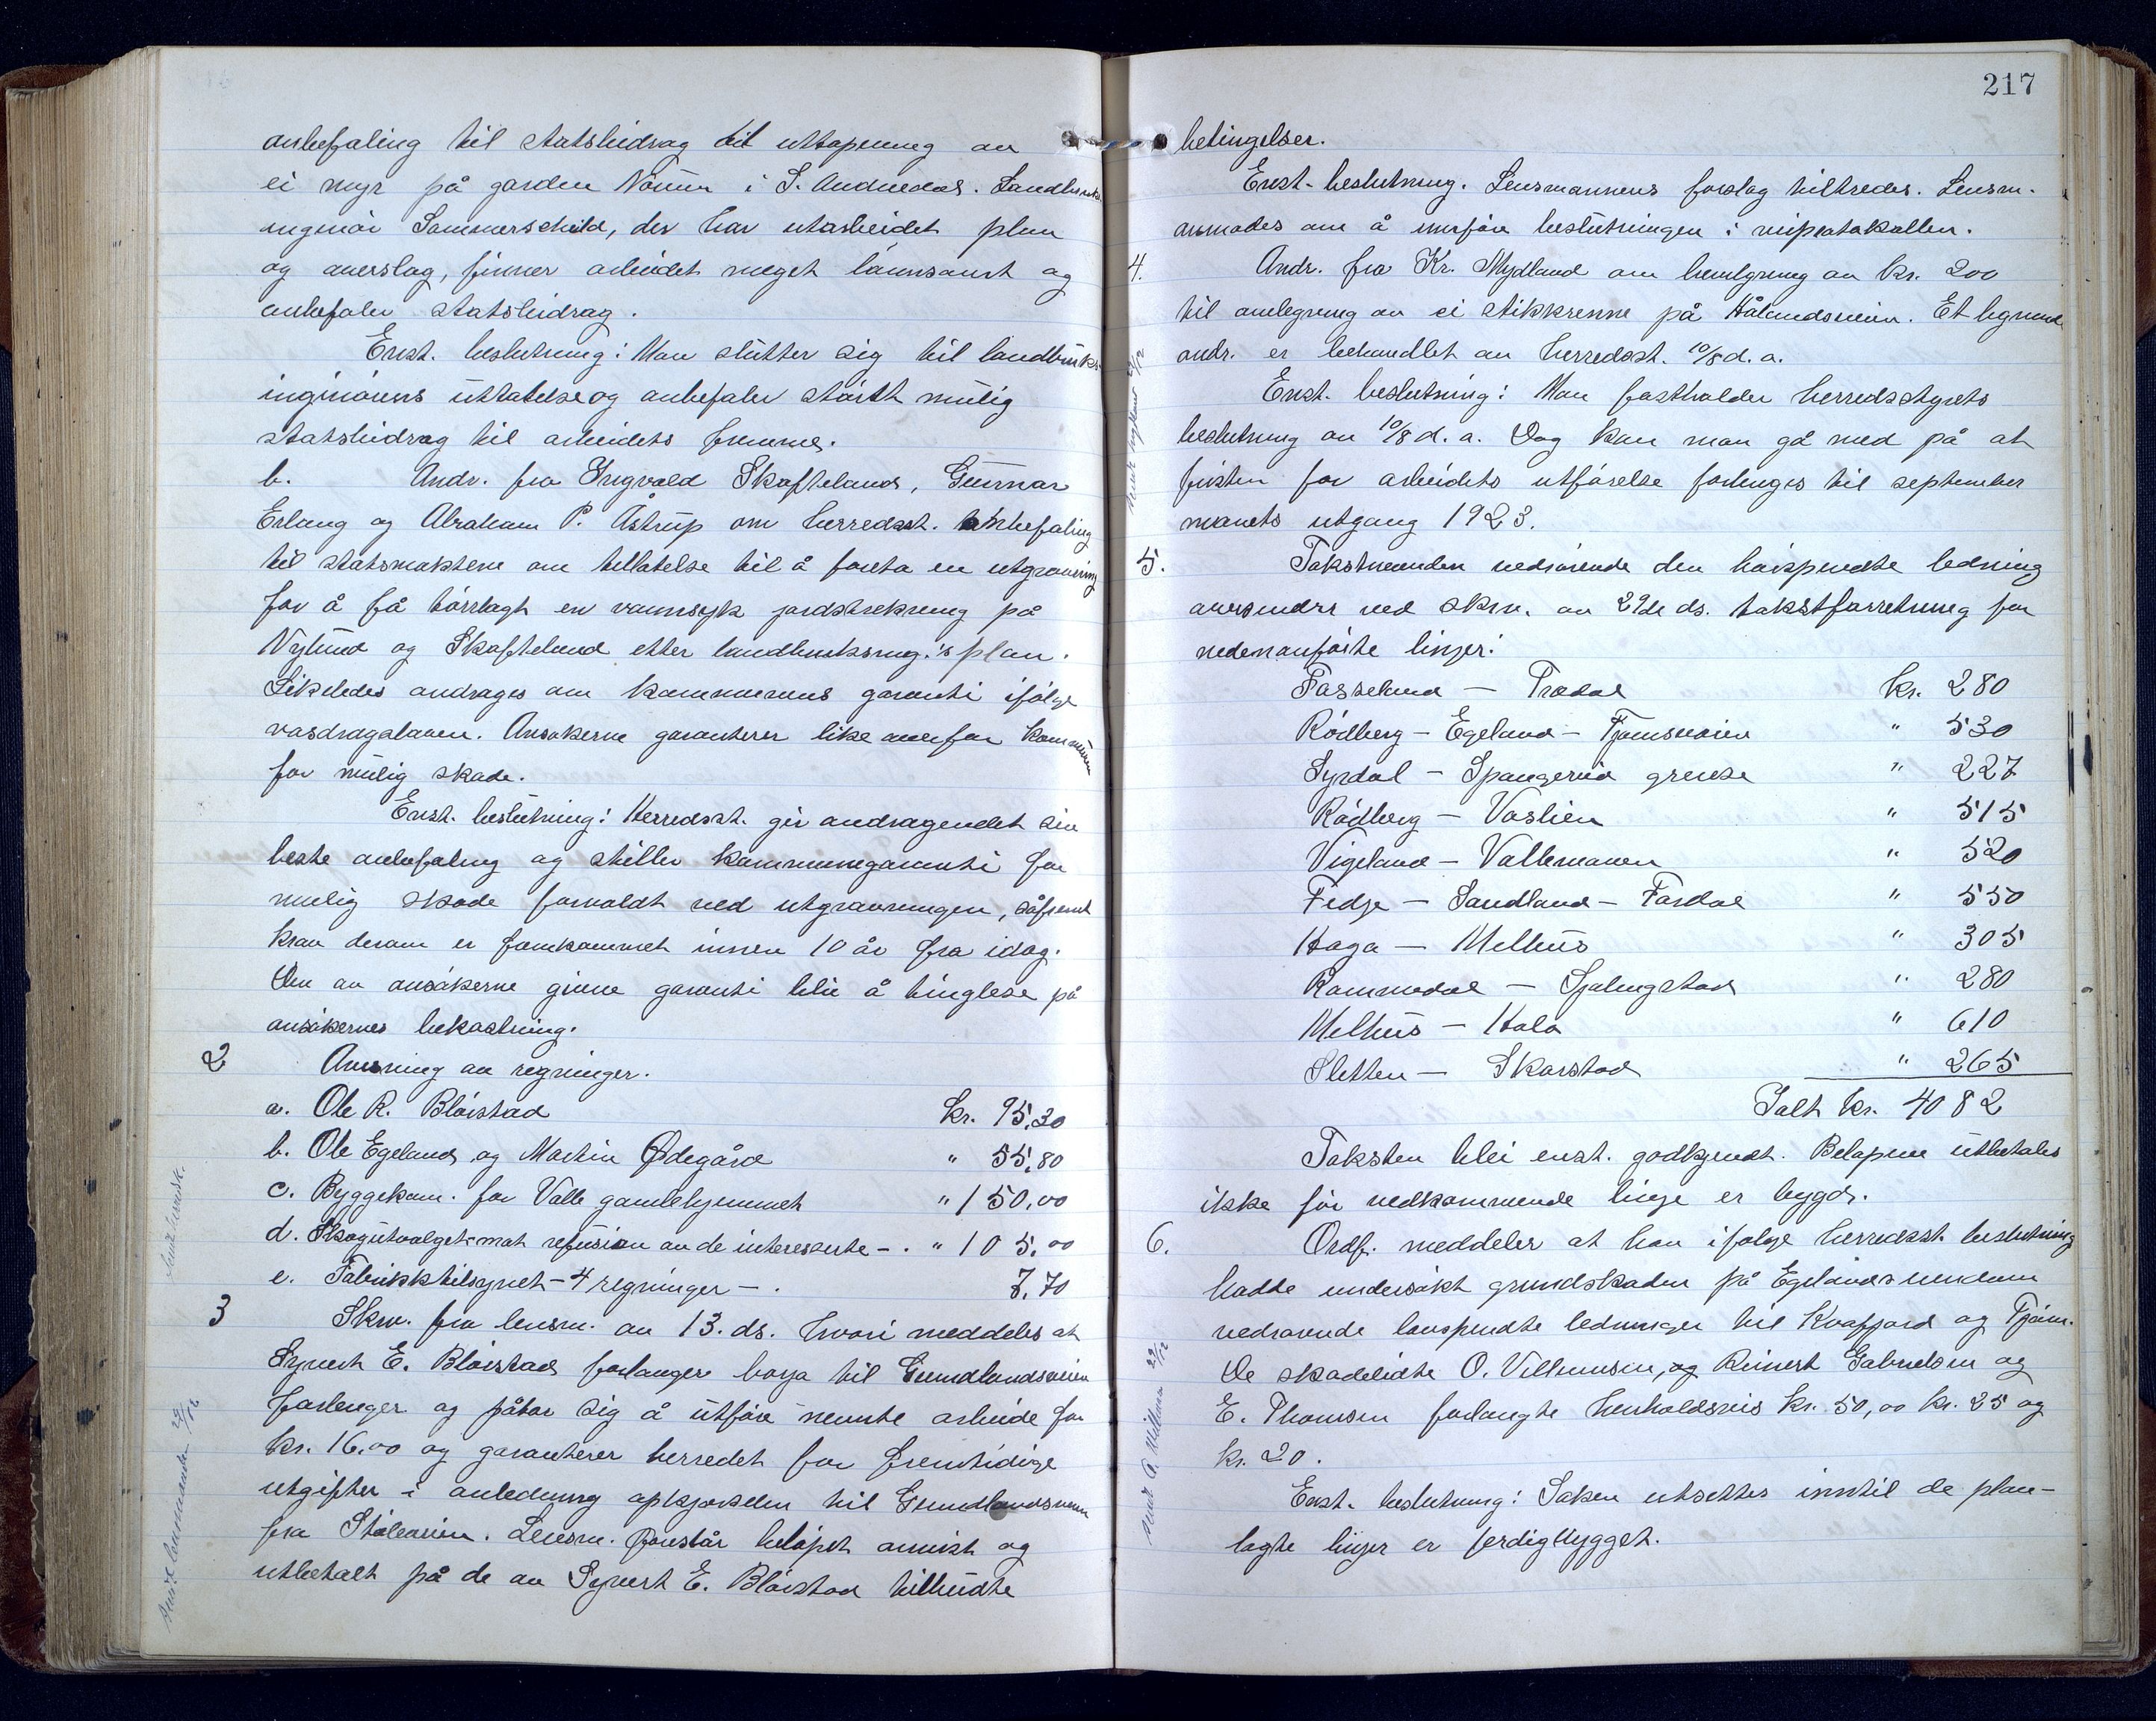 anbefaling til statsbidrag til uttapning av
ei myr på garden Nöime i S. Audnedal. Landbruks-
ingeniör Sommerschild, der har utarbeidet plan
og averslag, finner arbeidet meget lönnsamt og
anbefaler statsbidrag.
Enst. beslutning: Man slutter sig til landbruks-
inginörens uttalelse og anbefaler störst mulig
statsbidrag til arbeidets fremme.
b. Andr. fra Yngvald Skofteland, Gunnar
Erlang og Abraham P. Åstrup om herredsst. anbefaling
til statsmaktene om tillatelse til å foreta en utgravning
for å få törrlagt en vannsyk jordstrekning på
Nylund og Skofteland etter landbruksing.'s plan.
Likeledes andrages om kommunens garanti ifölge
vasdragsloven. Ansökerne garanterer like overfor kommunen
for mulig skade.
Enst. beslutning: Herredsst. gir andragendet sin
beste anbefaling og stiller kommunegaranti for
mulig skade forvoldt ved utgravningen, såfremt
krav derom er fremkommet innen 10 år fra idag.
Den av ansökerne givne garanti blir å tinglese på
ansökernes bekostning.
2 Anvisning av regninger.
a. Ole R. Blöistad kr. 95,30
b. Ole Egeland og Martin Ödegård " 55,80
c. Byggekom. for Valle gamlehjemmet " 150,00
d. Skogutvalget-mot refusion av de interesserte - . " 105,00
e. Fabrikktilsynet - 4 regninger - . 7,70
3 Skriv. fra lensm. av 13. ds. hvori meddeles at
Syvert E. Blöistad forlanger borja til Grundlandsveien
forlenger og påtar sig å utföre nevnte arbeide for
kr. 16,00 og garanterer herredet for fremtidige
utgifter i anledning opkjörselen til Grundlandsveien
fra Stöleveien. Lensm. foreslår belöpet anvist og
utbetalt på de av Syvert E. Blöistad tilbudte
Sendt lensmannen 29/12
217
betingelser.
Enst. beslutning. Lensmannens forslag tiltredes. Lensm.
anmodes om å innföre beslutningen i veiprotokollen.
4. Andr. fra Kr. Mydland om bevilgning av kr. 200
til anlegning av ei stikkrenne på Hålandsveien. Et lignende
andr. er behandlet av herredsst. 10/8 d. a.
Enst. beslutning: Man fastholder herredsstyrets
beslutning av 10/8 d. a. Dog kan man gå med på at
fristen for arbeidets utförelse forlenges til september
måneds utgang 1923.
Sendt Mydland 29/12
5. Takstnevnden vedrörende den höispendte ledning
oversender ved skriv. av 29de ds. takstforretning for
nedenanförte linjer:
Fasseland — Trædal kr. 280
Rödberg - Egeland - Tjomsveien " 530
Syrdal - Spangereid grense " 227
Rödberg — Vaslien " 515
Vigeland - Vallemoen " 520
Fidje - Sandland - Fardal " 550
Haga — Melhus " 305
Rommedal — Spilingstad " 280
Melhus - Hala " 610
Sletten — Skarstad " 265
Ialt kr. 4082
Taksten blei enst. godkjendt. Belöpene utbetales
ikke för vedkommende linje er bygd.
6. Ordf. meddeler at han ifölge herredsst. beslutning
hadde undersökt grundskaden på Egelands eiendom
vedrörende lavspendte ledninger til Kvafjord og Tjöm.
De skadelidte O. Villumsen, og Reinert Gabrielsen og
E. Thomsen forlangte henholdsvis kr. 50,00 kr. 25 og
kr. 20.
Enst. beslutning: Saken utsettes inntil de plan-
lagte linjer er ferdigbygget.